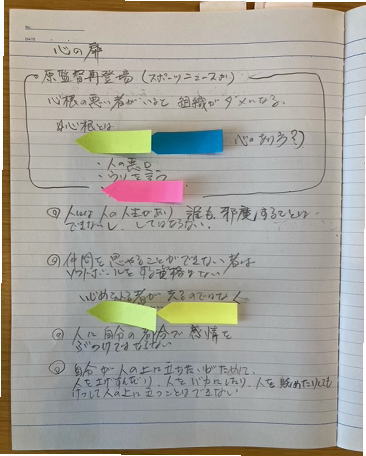 心の扉
原監督再登場（スポーツニュースより）
心根の悪い者がいると組織がダメになる。
心根とは
心のあり方?）
・人の悪口
・ウソを言う
人には人の人生があり 誰も邪魔することは
できないし、してはならない。
仲間を思いやることができない者は
ソフトボールをする資格はない
人に自分の都合で感情を
ぶつけてはならない
自分が人の上に立ちたいがために、
人を上げすんだり、人をバカにしたり、人を貶めたりしても
けっして人の上に立つことはできない